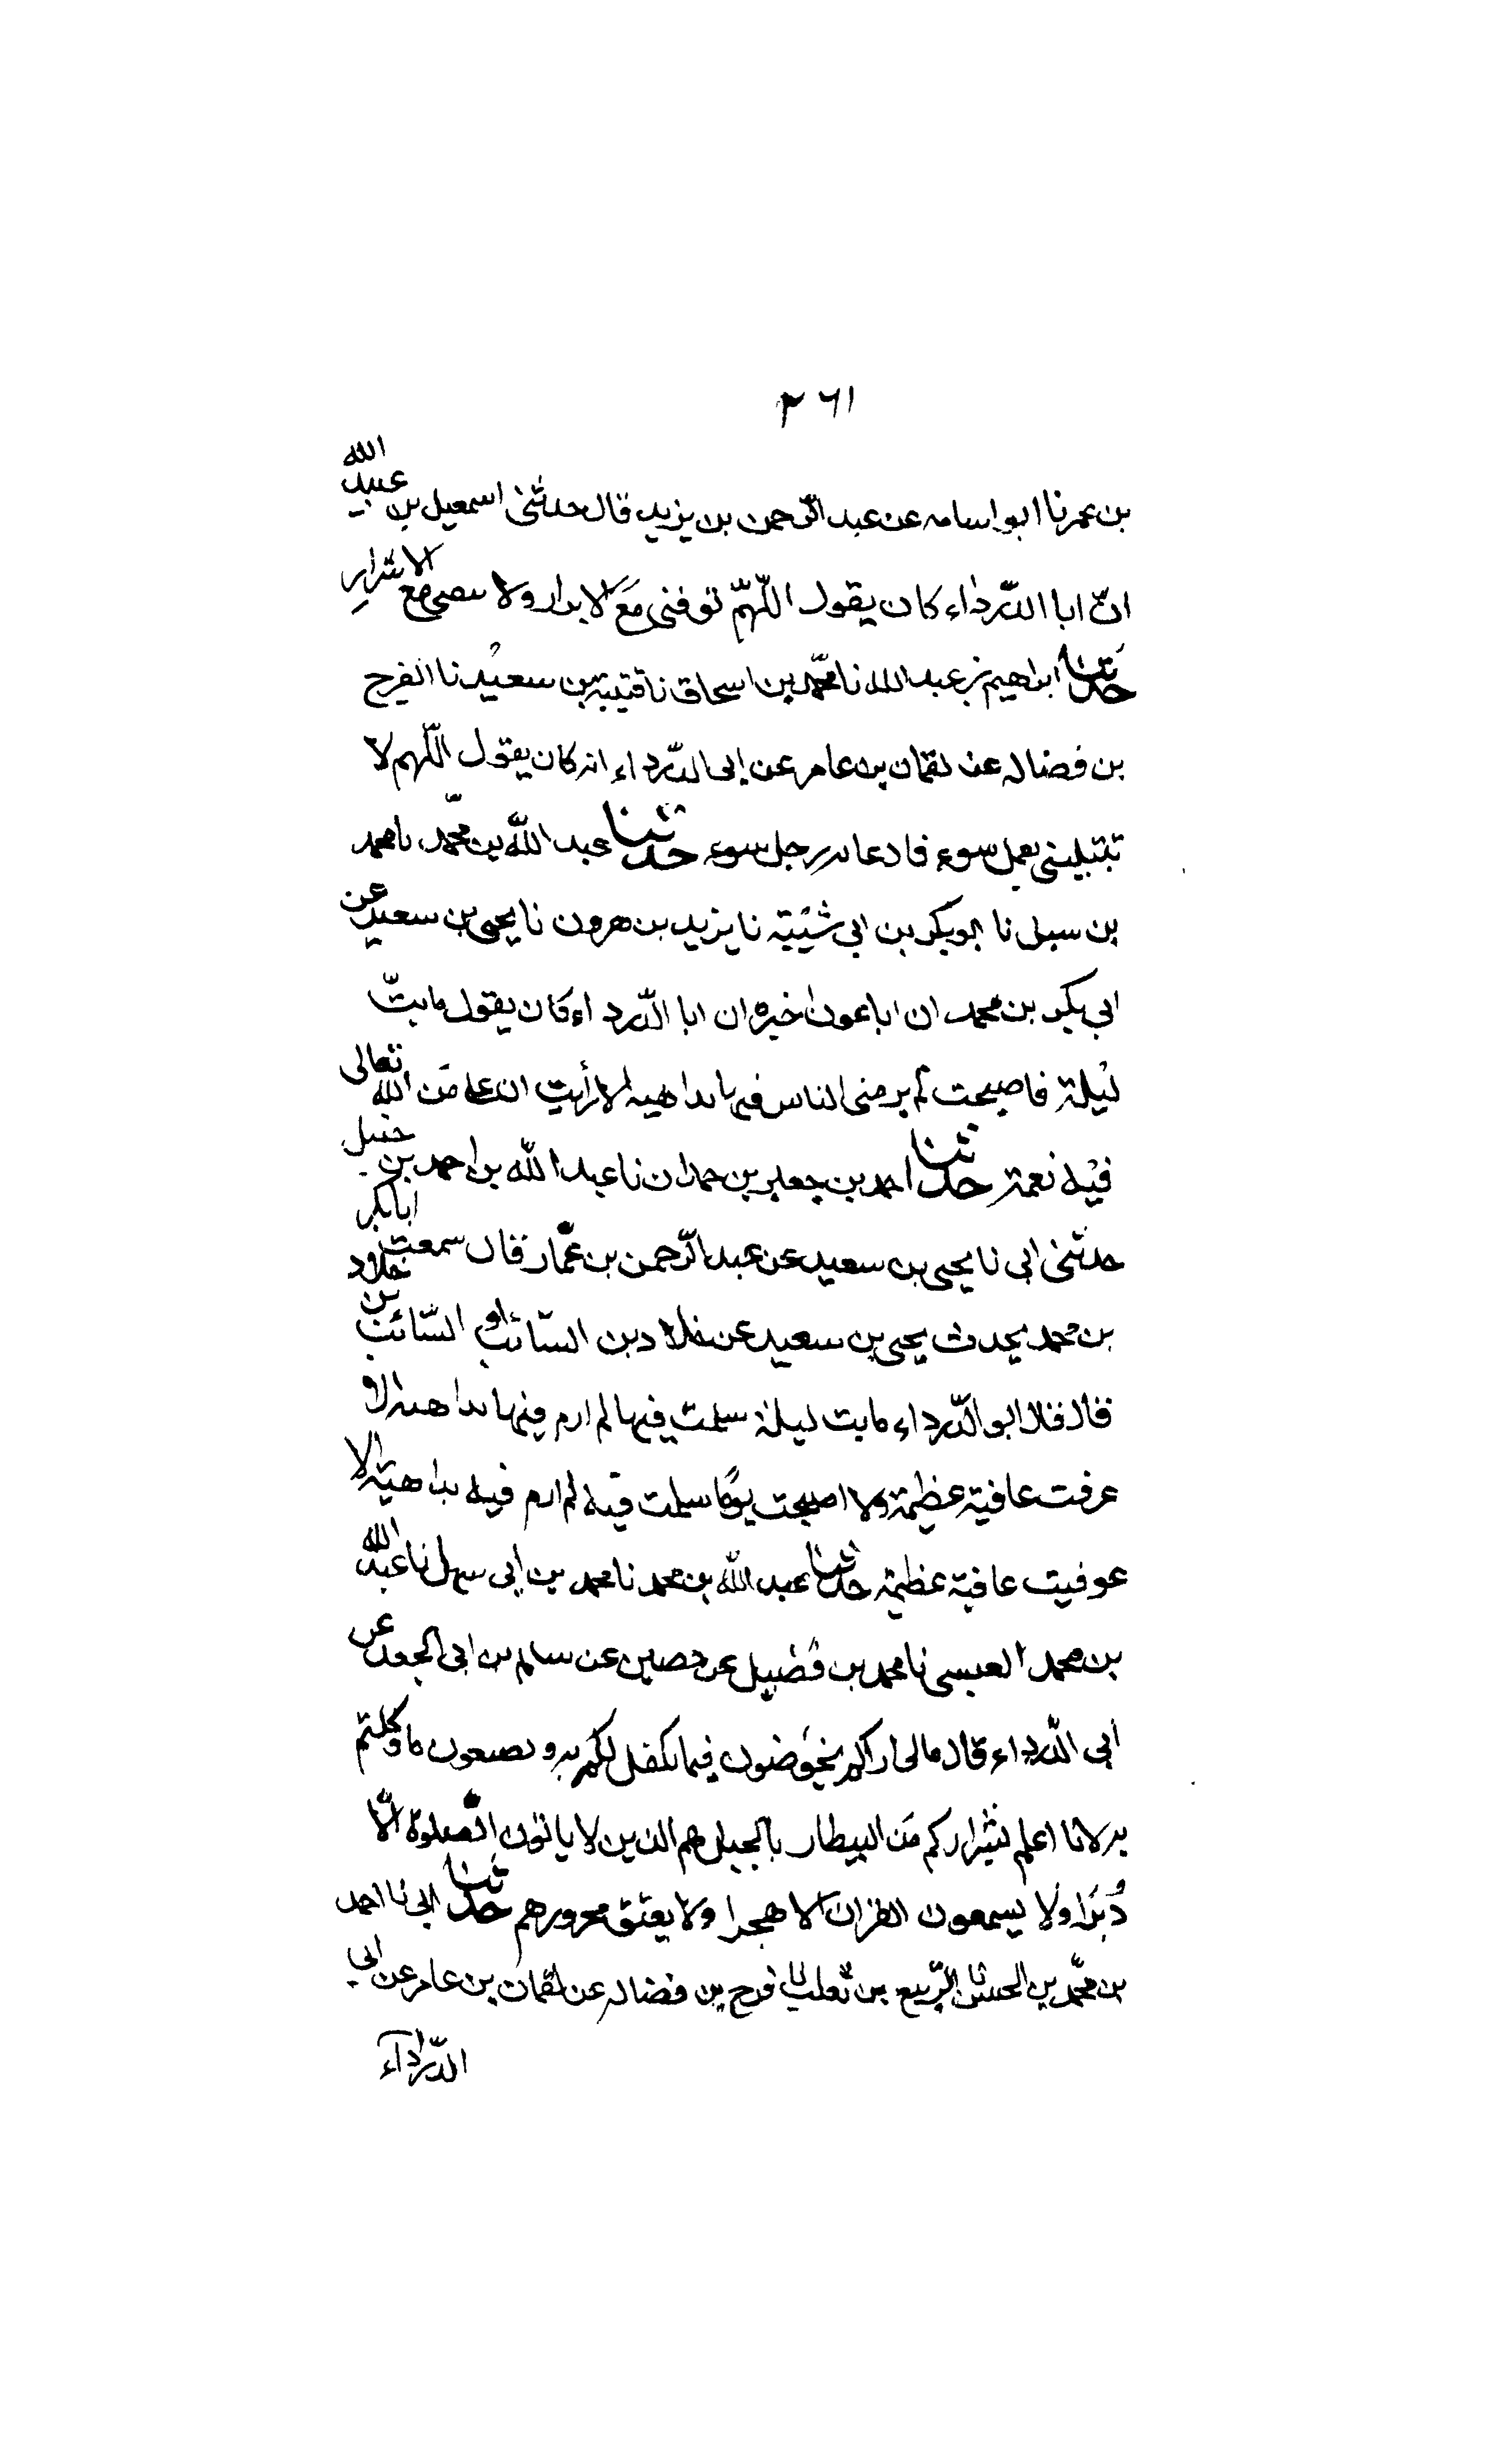 ٣٦١
بن عمر نا ابو اسامه عن عبد الرّحمن بن يزيد قال حدثنى اسمعيل بن عبيد الله
انّ ابا الدّرداء كان يقول اللّهمّ توفنى مَع الابرار ولا مع الاشرار
حَدّثنا ابراهيم بن عبد الله نا محمّد بن اسحاق نا قتيبة بن سعيد نا الفرج
بن فضاله عن لقمان بن عامر عن ابى الدّرداء انه كان يقول اللّهم لا
تبتلينى بعمل سوء فادعا به رجل سوء حدثنا عبد اللّه بن محمّد نا محمد
بن سبل نا ابو بكر بن ابى شيبة نا يزيد بن هرون نا يحيى بن سعيد عن
ابى بكر بن محمد ان ابا عون اخبره ان ابا الدّرداء كان يقول ما بتّ
ليلة فاصبحت لم يرمنى الناس فيها بداهيه الا رأيت ان علىّ من الله تعالى
فيه نعمة حدثنا احمد بن جعفر بن حمدان نا عبد اللّه بن احمد بن حنبل
حدثنى ابى نا يحيى بن سعيد عن عبد الرّحمن بن عمّار قال سمعت ابا بكر
بن محمد يحدث يحيى بن سعيد عن خلاد بن السّائب او السّائب بن خلاد
قال قال ابو الدّرداء ما بت ليلة سلمت فيها لم ارم فيها بداهية الا
عرفت عافية عظيمة ولا اصبحت يومًا سلمت فيه لم ارم فيه بداهية الا
عوفيت عافية عظيمة حدثنا عبد اللّه بن محمد نا محمد بن ابى سهل نا عبد الله
بن محمد العبسى نا محمد بن فضيل عن حصين عن سالم بن ابى الجعد عن
ابى الدّرداء قال مالى اراكم تخوضون فيما تكفل لكم به وتضيعون ما وكلتم
به لانا اعلم بشراركم من البيطار بالخيل هم الذين لا ياتون الصّلوة الّا
دُبُرًا ولا يسمعون القران الا هجرا ولا يعتق محرورهم حدثنا ابى نا احمد
بن محمّد بن الحسن نا الرّبيع بن ثعلب نا فرج بن فضاله عن لقمان بن عامر عن ابى
الدّرداء